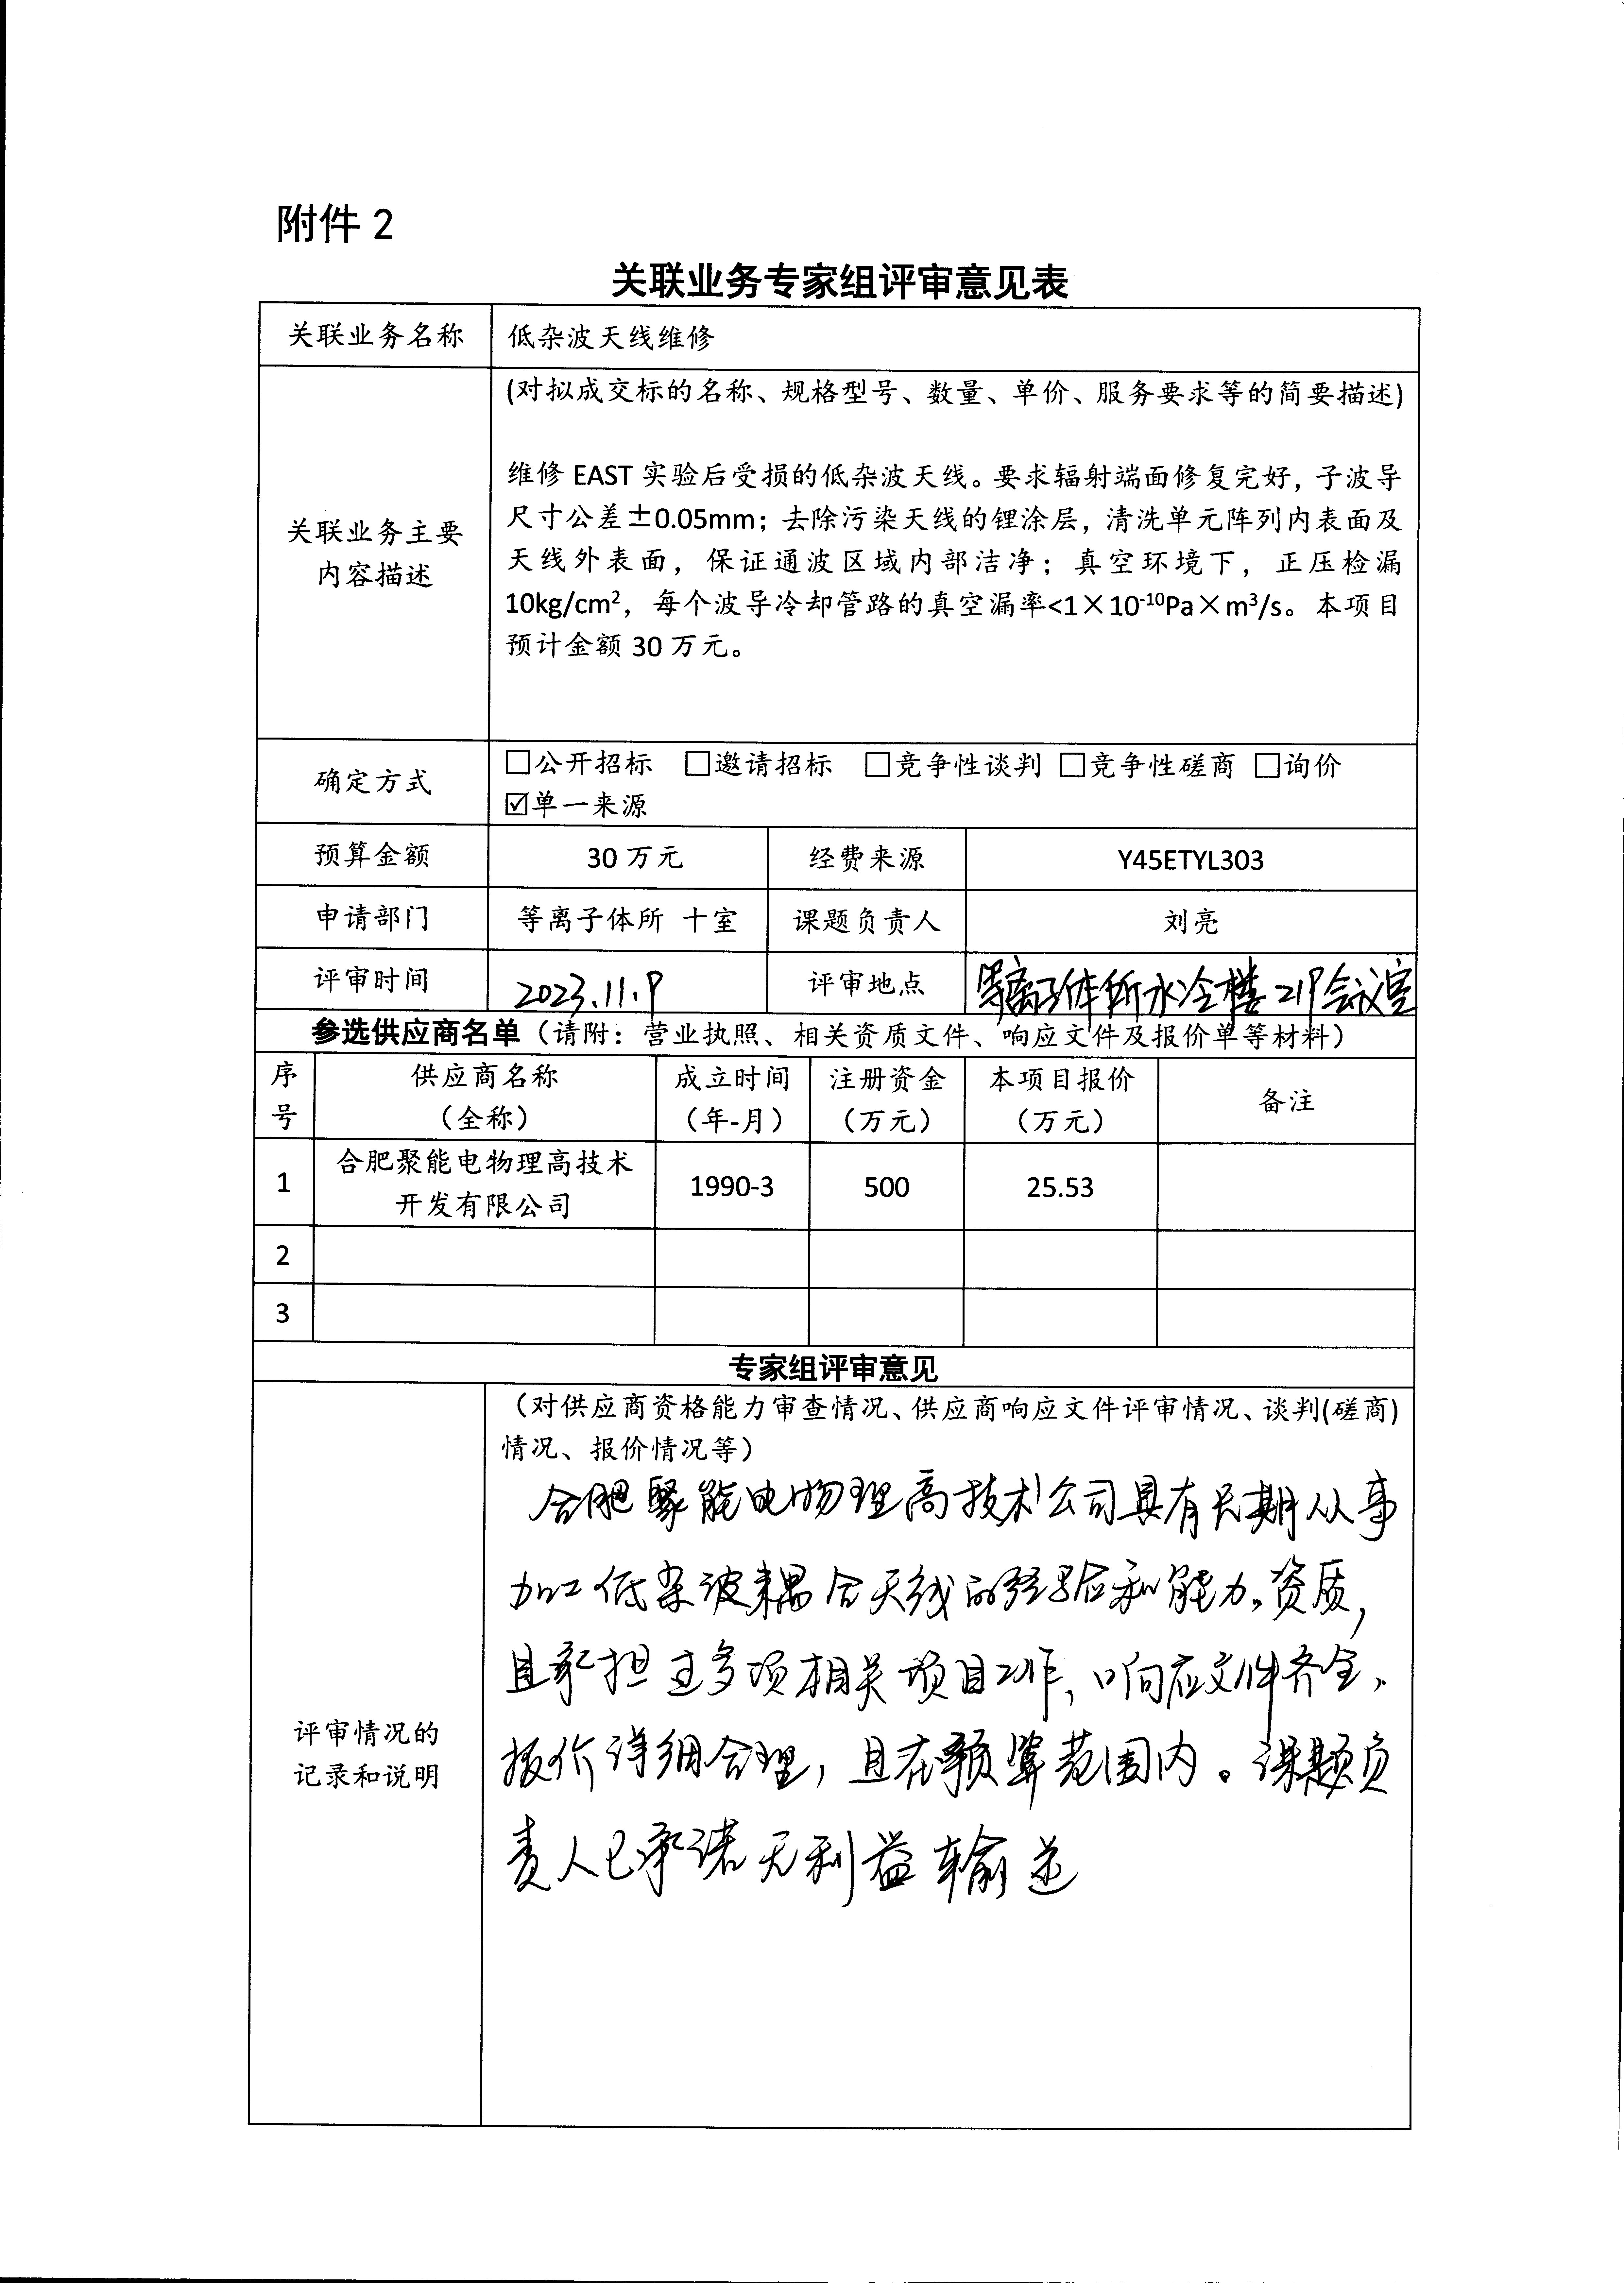 附件 2
关联业务专家组评审意见表
关联业务名称 低杂波天线维修
(对拟成交标的名称、规格型号、数量、单价、服务要求等的简要描述)
关联业务主要
内容描述
维修 EAST 实验后受损的低杂波天线。要求辐射端面修复完好，子波导
尺寸公差±0.05mm；去除污染天线的锂涂层，清洗单元阵列内表面及
天线外表面，保证通波区域内部洁净；真空环境下，正压检漏
10kg/cm²，每个波导冷却管路的真空漏率<1×10⁻¹⁰Pa×m³/s。本项目
预计金额 30 万元。
确定方式
☐公开招标 ☐邀请招标 ☐竞争性谈判 ☐竞争性磋商 ☐询价
☑单一来源
预算金额 30 万元 经费来源 Y45ETYL303
申请部门 等离子体所 十室 课题负责人 刘亮
评审时间 2023.11.9 评审地点 等离子体所水冷楼 219会议室
参选供应商名单（请附：营业执照、相关资质文件、响应文件及报价单等材料）
序
号
供应商名称
（全称）
成立时间
（年-月）
注册资金
（万元）
本项目报价
（万元）
备注
1
合肥聚能电物理高技术
开发有限公司
1990-3 500 25.53
2
3
专家组评审意见
评审情况的
记录和说明
（对供应商资格能力审查情况、供应商响应文件评审情况、谈判(磋商)
情况、报价情况等）
合肥聚能电物理高技术公司具有长期从事
加工低杂波耦合天线的经验和能力、资质，
且承担过多项相关项目工作，响应文件齐全、
报价详细合理，且在预算范围内。课题负
责人已承诺无利益输送